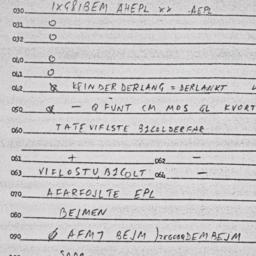 030 1XG8IBEM AHEPL xx AEPL
031 O
032 O
040 O
041 O
042 KGINDERDERLANG = DERLANKT
050 — Q FUNT CM MOS GL KVORT
060 TATEVIFLSTE B2COLDERFAR
061 + 062 —
063 VIFLOSTU, B2COLT 064 —
070 AFARFOJLTE EPL
080 BEJMEN
090 AFMJ BEJM DEMBEJM